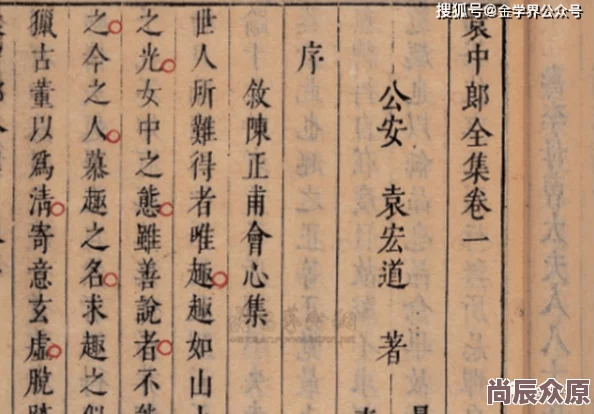 搜狐号@金学界公众号
袁中郎全集卷一
公安 袁宏道 著
序
敘陳正甫會心集
世人所難得者唯趣趣如山上
之光女中之態雖善說者不能
之今之人慕趣之名求趣之似
獵古董以為清寄意玄虛脫跡
尚辰众原